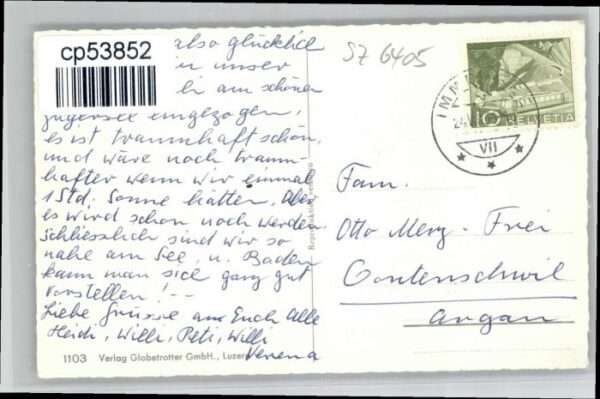 cp53852
also glücklich
in unser
li am schönen
zugersee eingezogen,
es ist traumhaft schön,
und wäre noch traum-
hafter wenn wir einmal
1 Std. Sonne hätten. Aber
es wird schon noch werden.
Schliesslich sind wir so
nahe am See, u. Baden
kann man sich ganz gut
vorstellen! --
Liebe Grüsse an Euch Alle
Heidi, Willi, Peti, Willi
Verena
1103 Verlag Globetrotter GmbH., Luzern
SZ 6405
10
HELVETIA
IMM
24.
VII
Fam.
Otto Merz-Frei
Contenschwil
Aargau